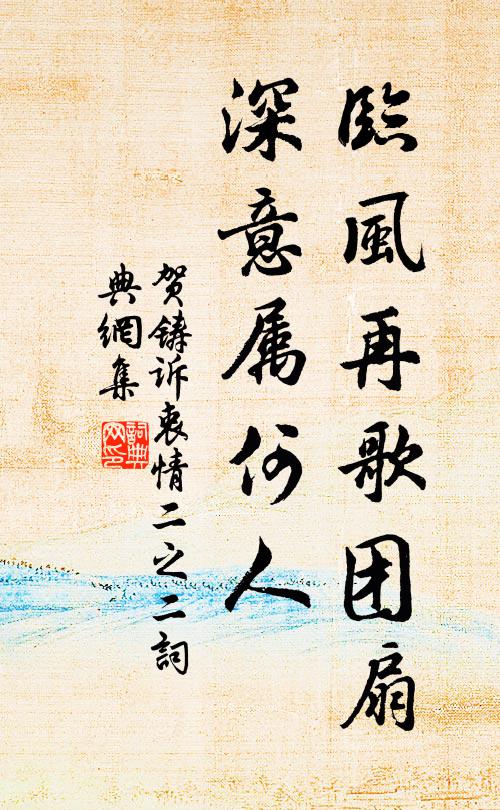 臨風再歌团扇
深意属何人
贺鑄訴衷情二之二詞
典網集
詞典
网印